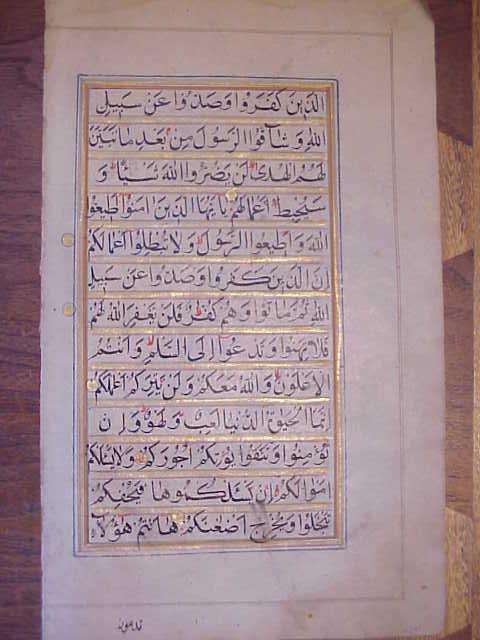 الَّذِينَ كَفَرُوا وَصَدُّوا عَنْ سَبِيلِ
اللهِ وَشَاقُّوا الرَّسُولَ مِنْ بَعْدِ مَا تَبَيَّنَ
لَهُمُ الْهُدَى لَنْ يَضُرُّوا اللهَ شَيْئًا وَ
سَيُحْبِطُ أَعْمَالَهُمْ يَا أَيُّهَا الَّذِينَ آمَنُوا أَطِيعُوا
اللهَ وَأَطِيعُوا الرَّسُولَ وَلَا تُبْطِلُوا أَعْمَالَكُمْ
إِنَّ الَّذِينَ كَفَرُوا وَصَدُّوا عَنْ سَبِيلِ
اللهِ ثُمَّ مَاتُوا وَهُمْ كُفَّارٌ فَلَنْ يَغْفِرَ اللهُ لَهُمْ
فَلَا تَهِنُوا وَتَدْعُوا إِلَى السَّلْمِ وَأَنْتُمُ
الْأَعْلَوْنَ وَاللهُ مَعَكُمْ وَلَنْ يَتِرَكُمْ أَعْمَالَكُمْ
إِنَّمَا الْحَيٰوةُ الدُّنْيَا لَعِبٌ وَلَهْوٌ وَإِنْ
تُؤْمِنُوا وَتَتَّقُوا يُؤْتِكُمْ أُجُورَكُمْ وَلَا يَسْئَلْكُمْ
أَمْوَالَكُمْ إِنْ يَسْئَلْكُمُوهَا فَيُحْفِكُمْ
تَبْخَلُوا وَيُخْرِجْ أَضْغَانَكُمْ هَا أَنْتُمْ هٰؤُلَاءِ